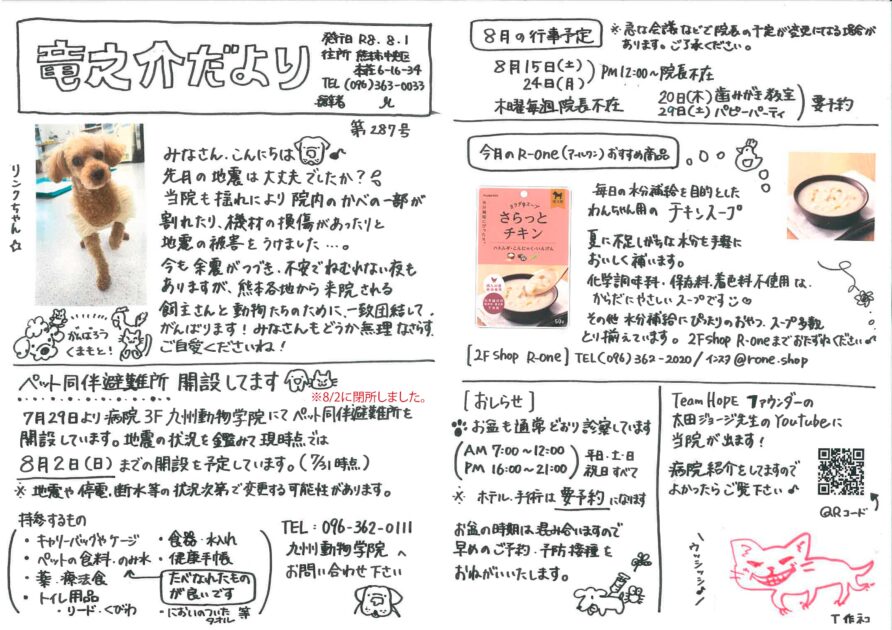 竜之介だより
発行日 R8.8.1
住所 熊本市中央区
本荘6-16-34
TEL (096)363-0033
第287号
リンクちゃん☆
みなさん、こんにちは♪
先月の地震は大丈夫でしたか?
当院も揺れにより院内のかべの一部が
割れたり、機材の損傷があったりと
地震の被害をうけました…。
今も余震がつづき、不安でねむれない夜も
ありますが、熊本各地から来院される
飼主さんと動物たちのために、一致団結して
がんばります!みなさんもどうか無理なさらず、
ご自愛くださいね!
がんばろう
くまもと!
ペット同伴避難所 開設してます
※8/2に閉所しました。
7月29日より病院3F九州動物学院にてペット同伴避難所を
開設しています。地震の状況を鑑みて現時点では
8月2日(日)までの開設を予定しています。(7/31時点)
※地震や停電、断水等の状況次第で変更する可能性があります。
持参するもの
・キャリーバッグやケージ
・ペットの食料・のみ水
・薬・療法食
・トイレ用品
・リード・くびわ
・食器・水入れ
・健康手帳
たべなれたもの
が良いです
・においのついた
タオル 等
TEL:096-362-0111
九州動物学院へ
お問い合わせ下さい
8月の行事予定
※急な会議などで院長の予定が変更になる場合が
あります。ご了承ください。
8月15日(土)
24日(月)
PM12:00~院長不在
木曜毎週院長不在
20日(木)歯みがき教室
29日(土)パピーパーティ
要予約
今月のR-one(アールワン)おすすめ商品
さらっと
チキン
ハトムギ・こんにゃく・いんげん
50g
毎日の水分補給を目的とした
わんちゃん用のチキンスープ
夏に不足しがちな水分を手軽に
おいしく補います。
化学調味料・保存料・着色料不使用な、
からだにやさしいスープです♡
その他水分補給にぴったりのおやつ、スープ多数
とり揃えています。2F Shop R-oneまでおたずねください♪
[2F shop R-one] TEL(096)362-2020/インスタ@rone.shop
[おしらせ]
お盆も通常どおり診察しています
AM 7:00~12:00
PM 16:00~21:00
平日・土・日
祝日すべて
※ホテル、手術は要予約になります
お盆の時期は混み合いますので
早めのご予約・予防接種を
おねがいいたします。
Team HOPE ファウンダーの
太田ジョージ先生のYoutubeに
当院が出ます!
病院紹介をしてますので
よかったらご覧下さい♪
QRコード
ウッシッシッ♪
T作ネコ